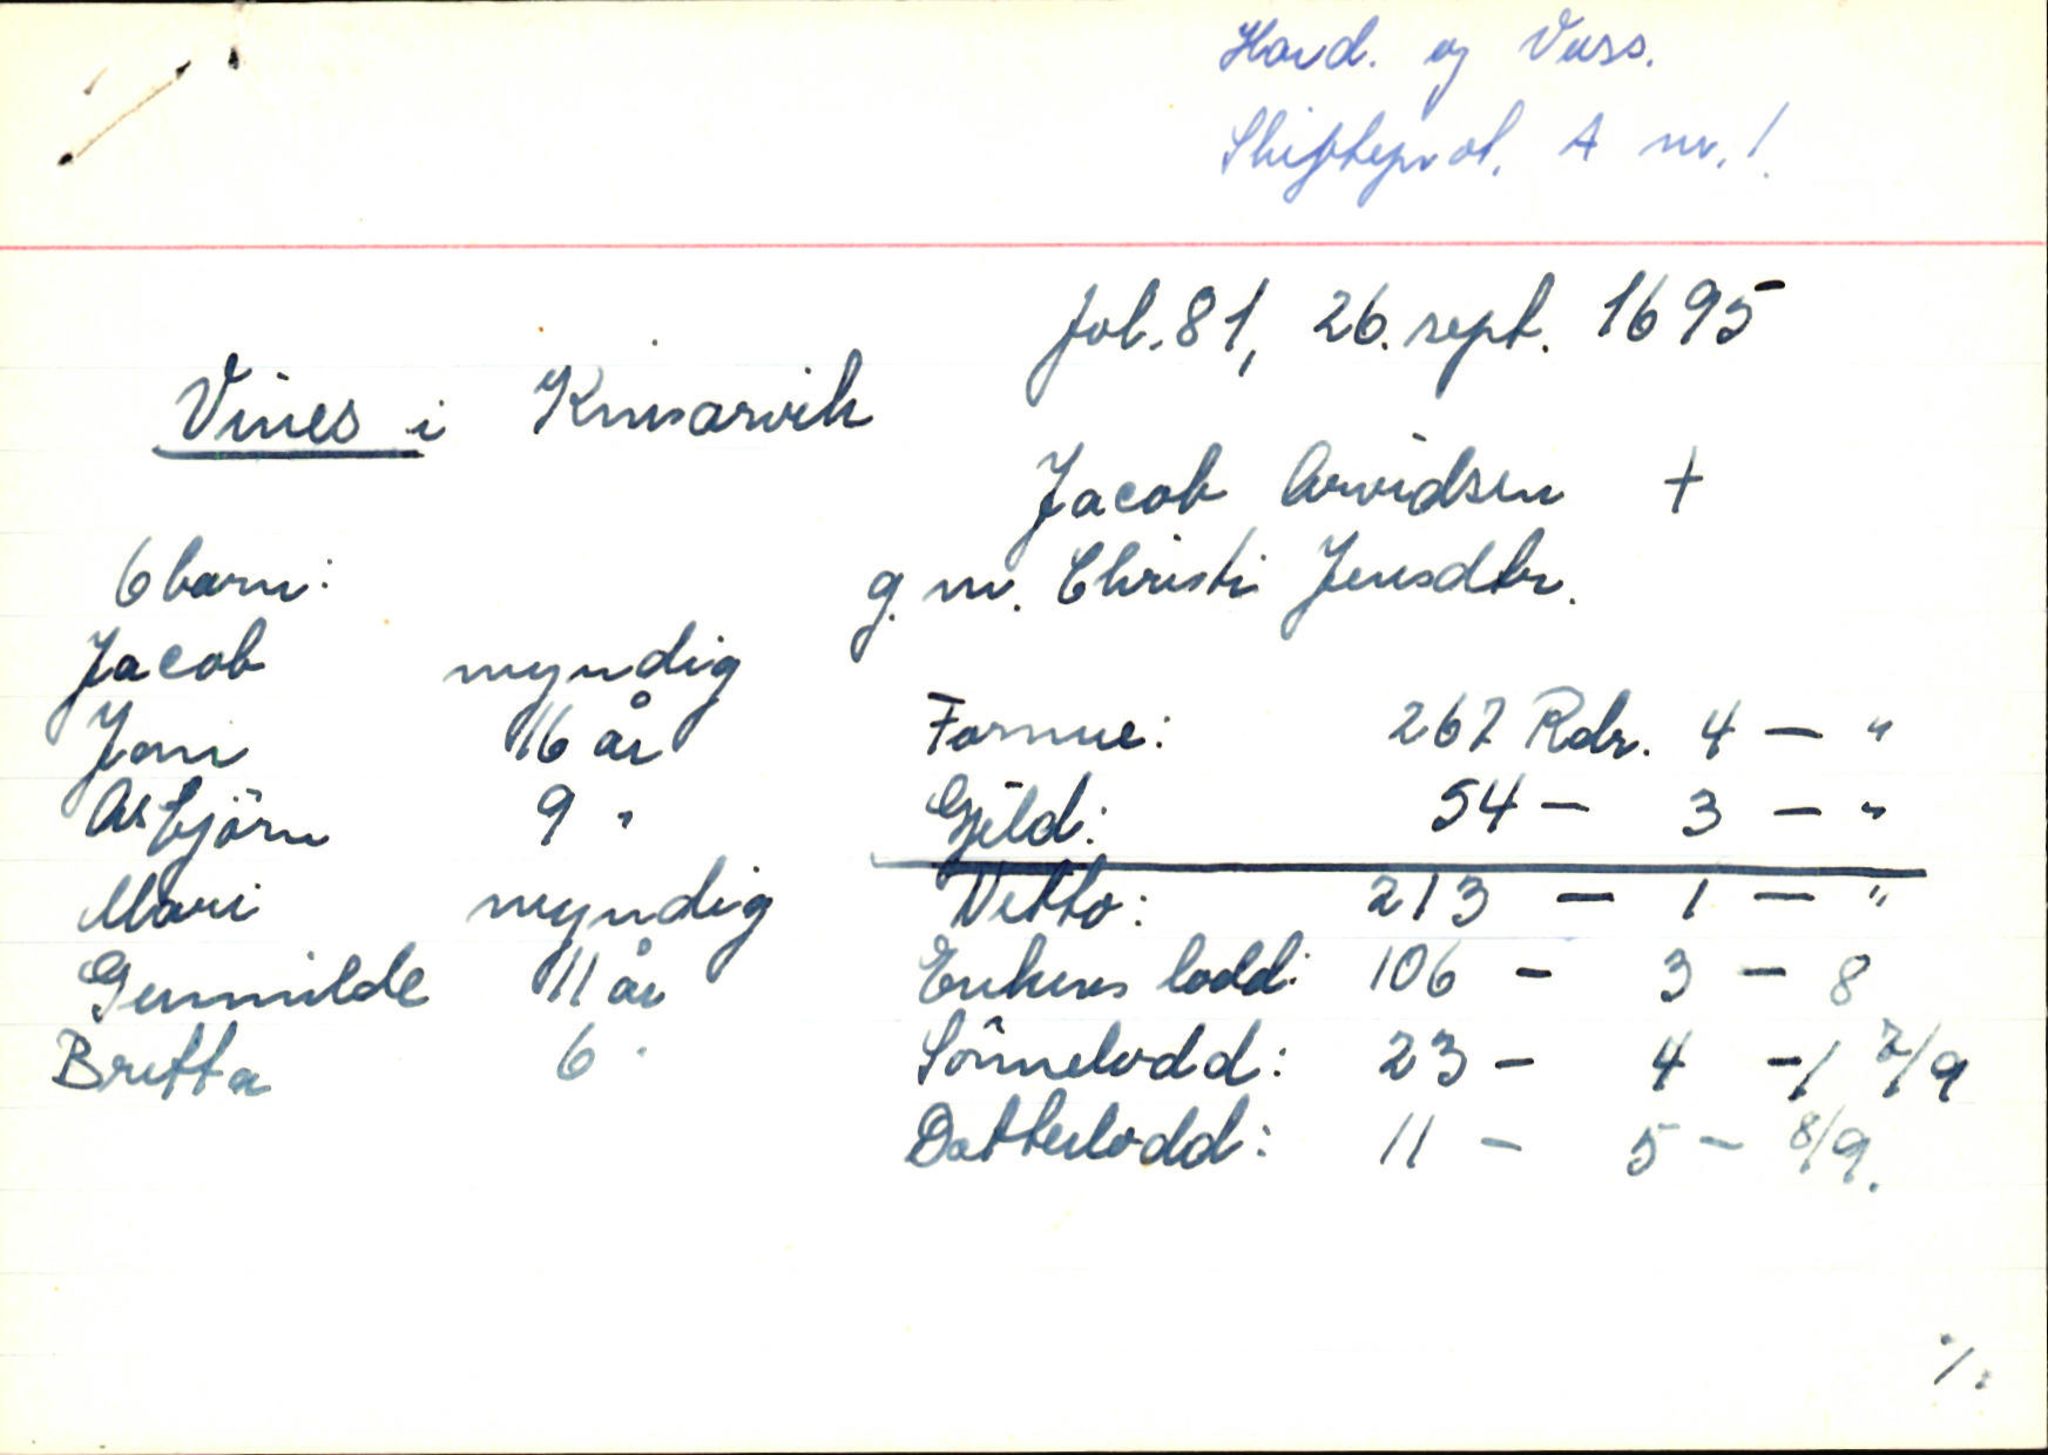 Hard. og Voss.
Skifteprot. A nr. 1.
fol. 81, 26. sept. 1695
Vines i Kinsarvik
Jacob Arvidsen +
g. m. Christi Jensdtr.
6 barn:
Jacob myndig
Joni 16 år
Asbjörn 9 "
Mari myndig
Gunnilde 11 år
Britta 6 "
Formue: 267 Rdr. 4 — "
Gjeld: 54 — 3 — "
Netto: 213 — 1 — "
Enkens lodd: 106 — 3 — 8
Sönnelodd: 23 — 4 — 1 7/9
Dotterlodd: 11 — 5 — 8/9.
./.